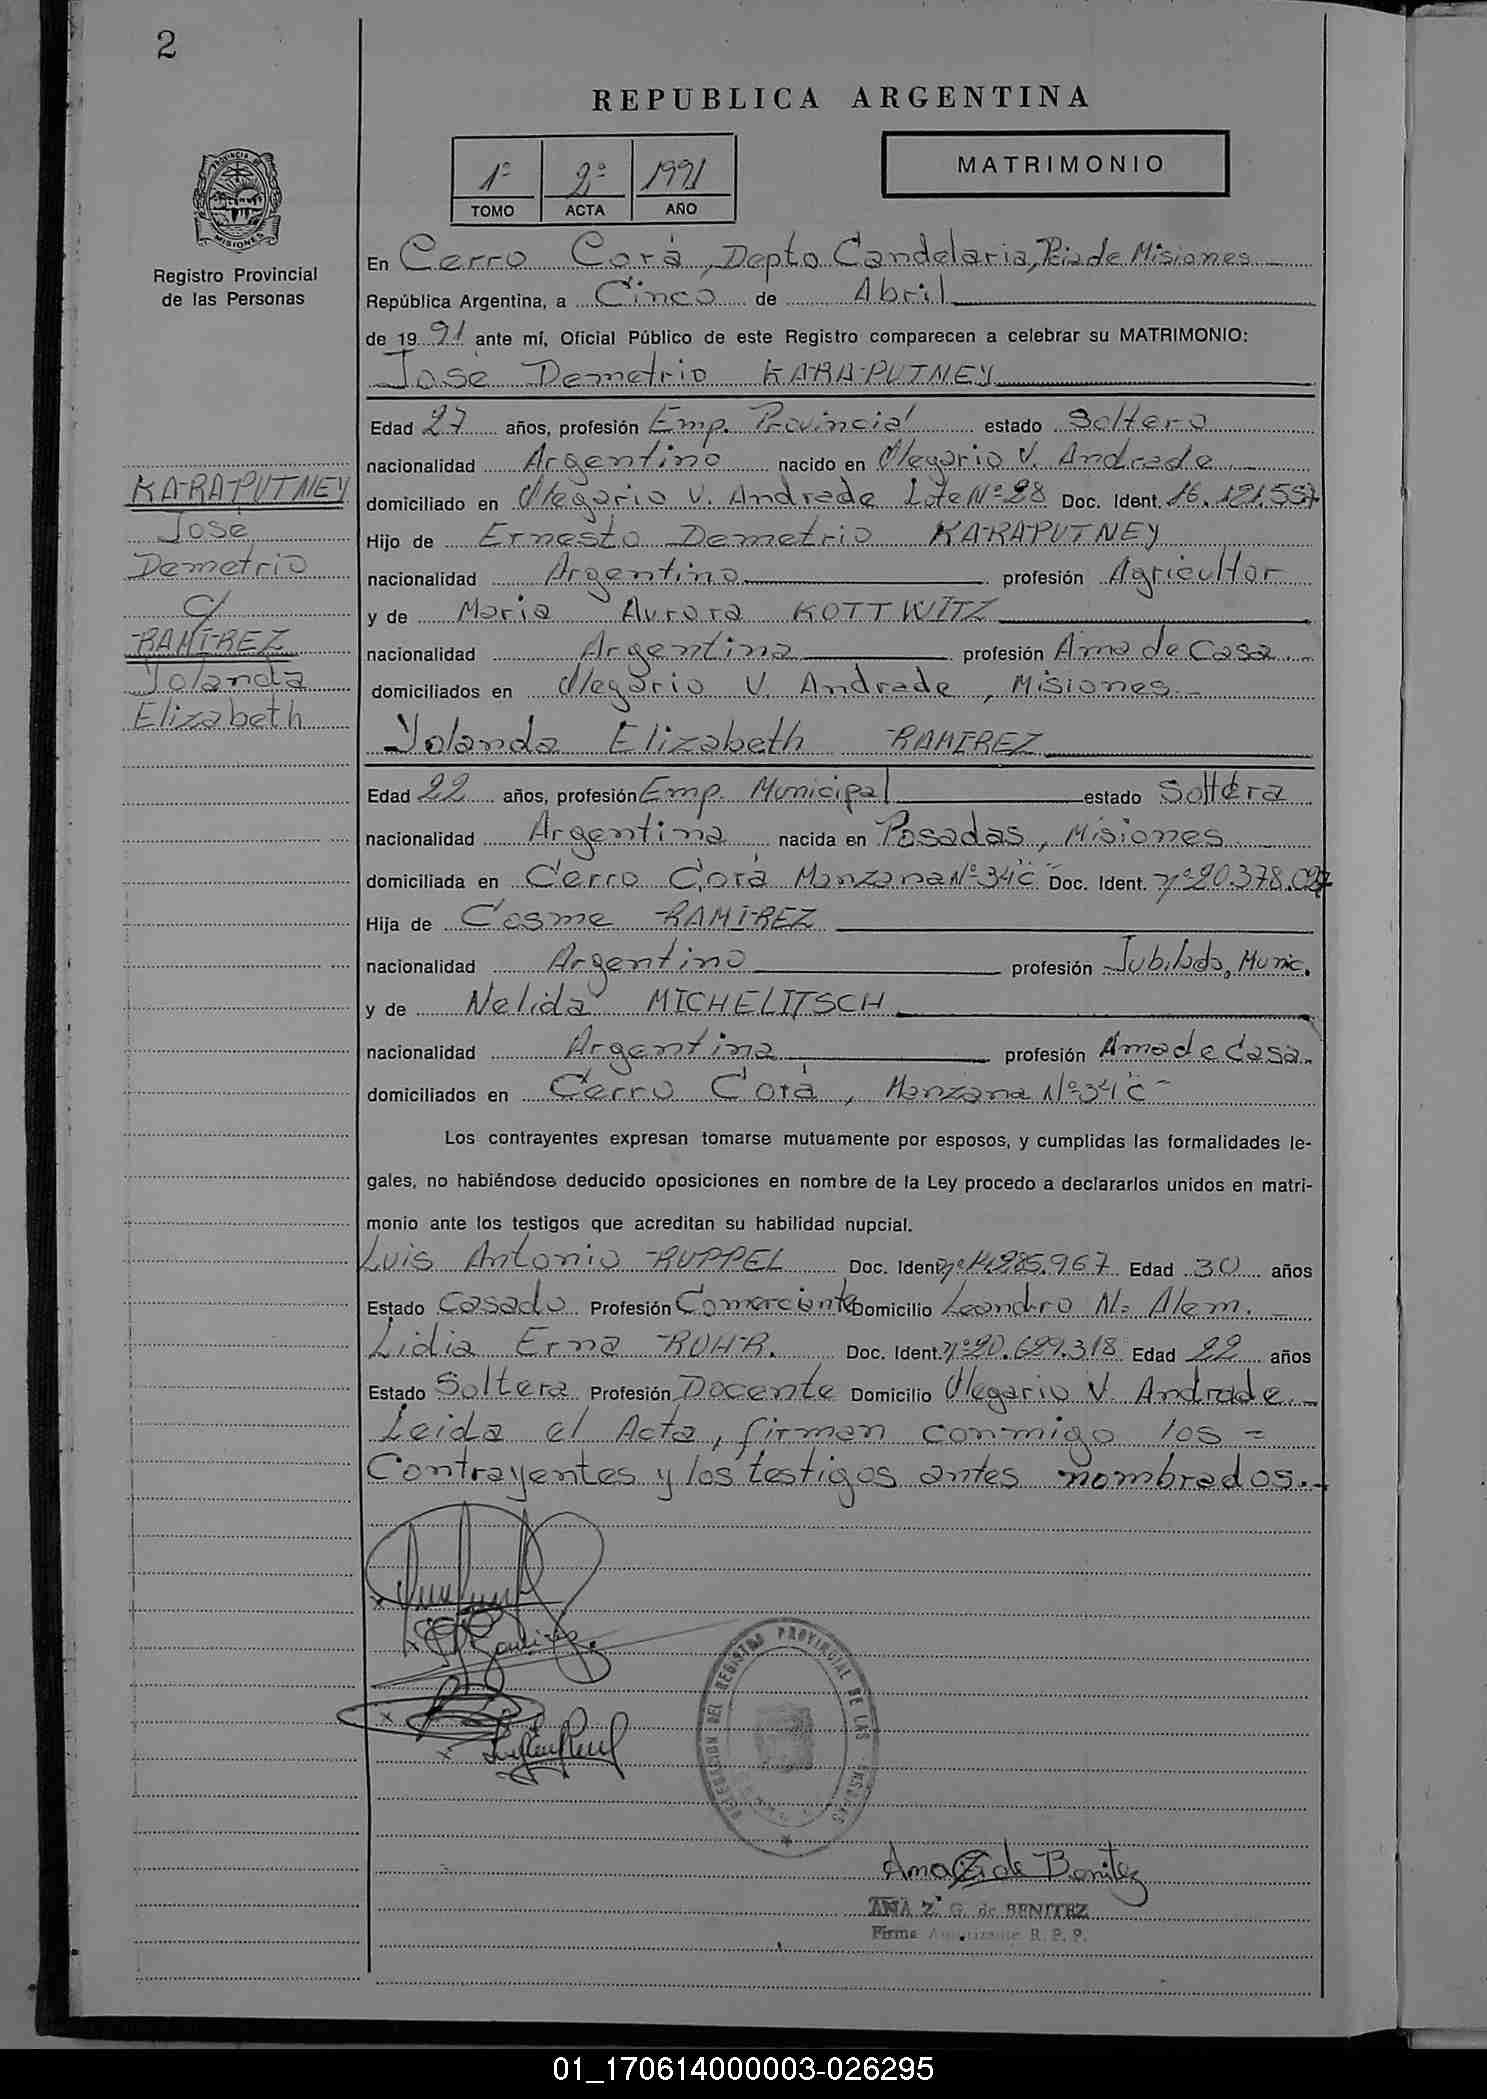 2
REPUBLICA ARGENTINA
1º 2º 1991
TOMO ACTA AÑO
MATRIMONIO
PROVINCIA DE
MISIONES
Registro Provincial
de las Personas
En Cerro Corá, Depto Candelaria, Pcia de Misiones
República Argentina, a Cinco de Abril
de 1991 ante mí, Oficial Público de este Registro comparecen a celebrar su MATRIMONIO:
José Demetrio KARAPUTNEY
Edad 27 años, profesión Emp. Provincial estado Soltero
nacionalidad Argentino nacido en Olegario V. Andrade
domiciliado en Olegario V. Andrade Lote Nº 28 Doc. Ident. 16.121.557
Hijo de Ernesto Demetrio KARAPUTNEY
nacionalidad Argentino profesión Agricultor
y de Maria Aurora KOTTWITZ
nacionalidad Argentina profesión Ama de Casa
domiciliados en Olegario V. Andrade, Misiones
KARAPUTNEY
José
Demetrio
c/
RAMIREZ
Yolanda
Elizabeth
Yolanda Elizabeth RAMIREZ
Edad 22 años, profesión Emp. Municipal estado Soltera
nacionalidad Argentina nacida en Posadas, Misiones
domiciliada en Cerro Corá Manzana Nº 34 "C" Doc. Ident. nº 20.378.027
Hija de Cosme RAMIREZ
nacionalidad Argentino profesión Jubilado, Munic.
y de Nelida MICHELITSCH
nacionalidad Argentina profesión Ama de Casa
domiciliados en Cerro Corá, Manzana Nº 34 "C"
Los contrayentes expresan tomarse mutuamente por esposos, y cumplidas las formalidades le-
gales, no habiéndose deducido oposiciones en nombre de la Ley procedo a declararlos unidos en matri-
monio ante los testigos que acreditan su habilidad nupcial.
Luis Antonio RUPPEL Doc. Ident. nº 14.985.967 Edad 30 años
Estado Casado Profesión Comerciante Domicilio Leandro N. Alem.
Lidia Erna ROHR. Doc. Ident. nº 20.629.318 Edad 22 años
Estado Soltera Profesión Docente Domicilio Olegario V. Andrade.
Leida el Acta, firman conmigo los =
Contrayentes y los testigos antes nombrados.
DIRECCION DEL REGISTRO PROVINCIAL DE LAS PERSONAS
Ana Z G de Benitez
ANA Z G. de BENITEZ
Firma Autorizante R. P. P.
01_170614000003-026295